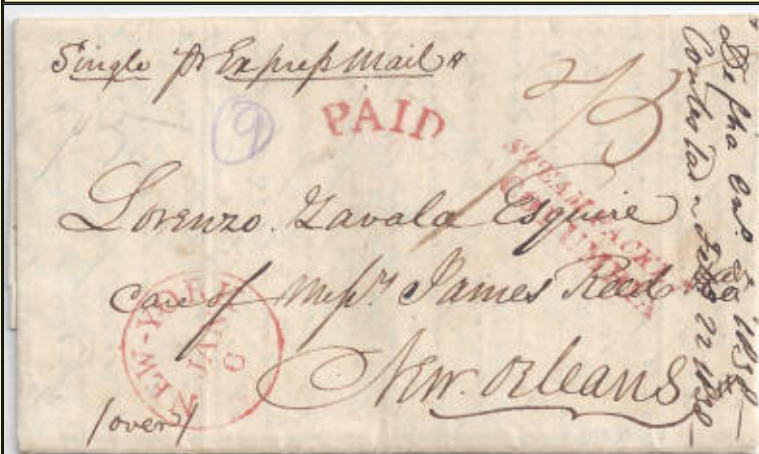 Single pr Express Mail
PAID
9
STEAM PACKET
COLUMBIA
Lorenzo Zavala Esquire
Care of Messrs James Reed & Co
New Orleans
NEW-YORK
JAN
6
/over/
1838
22 1838